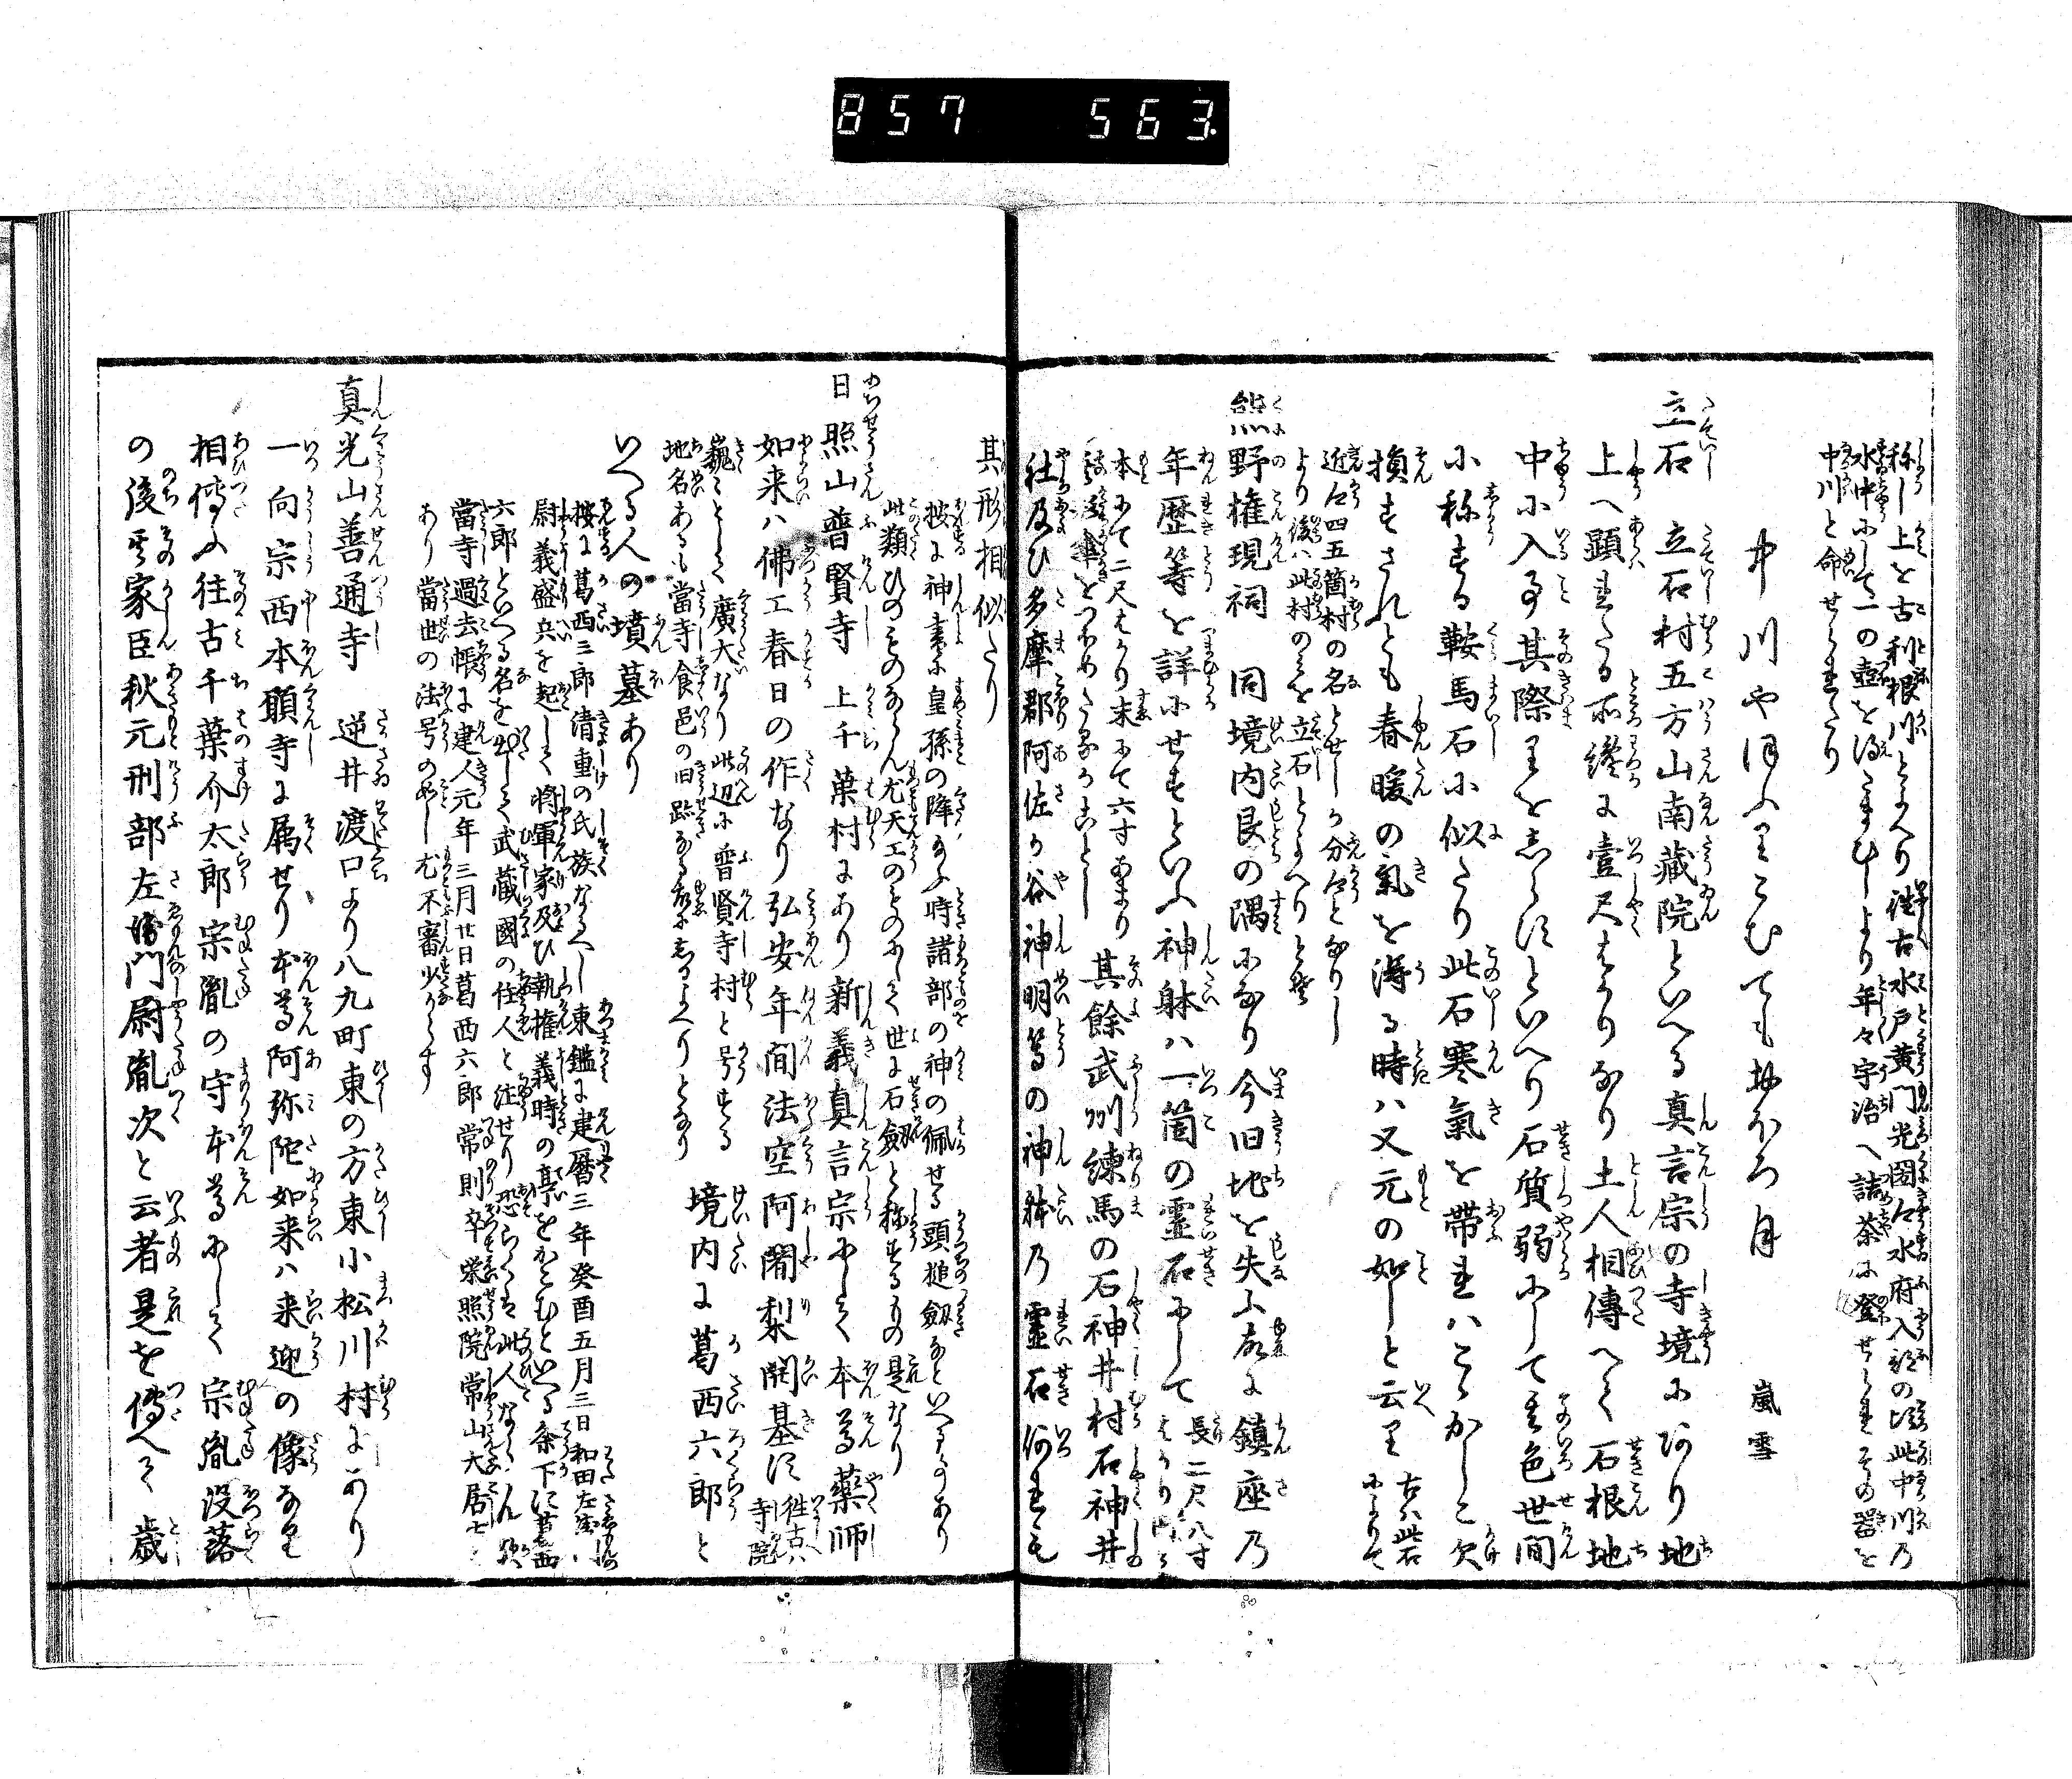 857 563
称し上を古利根川とよへり往古水戸黄門光圀公水府入部の頃此中川乃
水中にして一の壺を得たまひしより年々宇治へ詰茶に登せられその器を
中川と命せられたり
中川やほふりこむても朧月 嵐雪
立石 立石村五方山南蔵院といへる真言宗の寺境にあり地
上へ顕れたる所纔に壹尺はかりなり土人相傳へて石根地
中に入事其際りをしらすといへり石質弱にして其色世間
に称する鞍馬石に似たり此石寒氣を帯れはこゝかしこ欠
損すされとも春暖の氣を得る時ハ又元の如しと云り 古ハ此石によりて
近江四五箇村の名とせしか分郷となりし
より後ハ此村のミを立石とよへりと云
熊野権現祠 同境内艮の隅にあり今旧地を失ふ故に鎮座乃
年歴等を詳にせすといふ神躰ハ一箇の霊石にして 長二尺八寸はかり
本にて二尺はかり末にて六寸あまり
其餘武州練馬の石神井村石神井
社及ひ多摩郡阿佐ヶ谷神明等の神躰乃霊石何れも
其形相似たり
按に神書に皇孫の降給ふ時諸部の神の佩せる頭槌劔なといへるあり
此類ひのものならん尤天工のものにして世に石劔と称するもの是なり
日照山普賢寺 上千葉村にあり新義真言宗にして本尊薬師
如来ハ佛工春日の作なり弘安年間法空阿闍梨開基す 往古ハ寺院
巍々として廣大なり此辺に普賢寺村と号する
地名あるも當寺食邑の旧跡なる故にしかよへりとなり
境内に葛西六郎と
いへる人の墳墓あり
按に葛西三郎清重の氏族なるへし東鑑に建暦三年癸酉五月三日和田左衛門
尉義盛兵を起して将軍家及ひ執権義時の亭をかこむといへる条下に葛西
六郎といへる名を出して武蔵國の住人と注せり恐らくは此人ならん歟
當寺過去帳に建仁元年三月廿日葛西六郎常則卒栄照院常山大居士と
あり當世の法号のめし尤不審少からす
真光山善通寺 逆井渡口より八九町東の方東小松川村にあり
一向宗西本願寺に属せり本尊阿弥陀如来ハ来迎の像なり
相傳ふ往古千葉介太郎宗胤の守本尊にして宗胤没落
の後其家臣秋元刑部左衛門尉胤次と云者是を傳へて歳